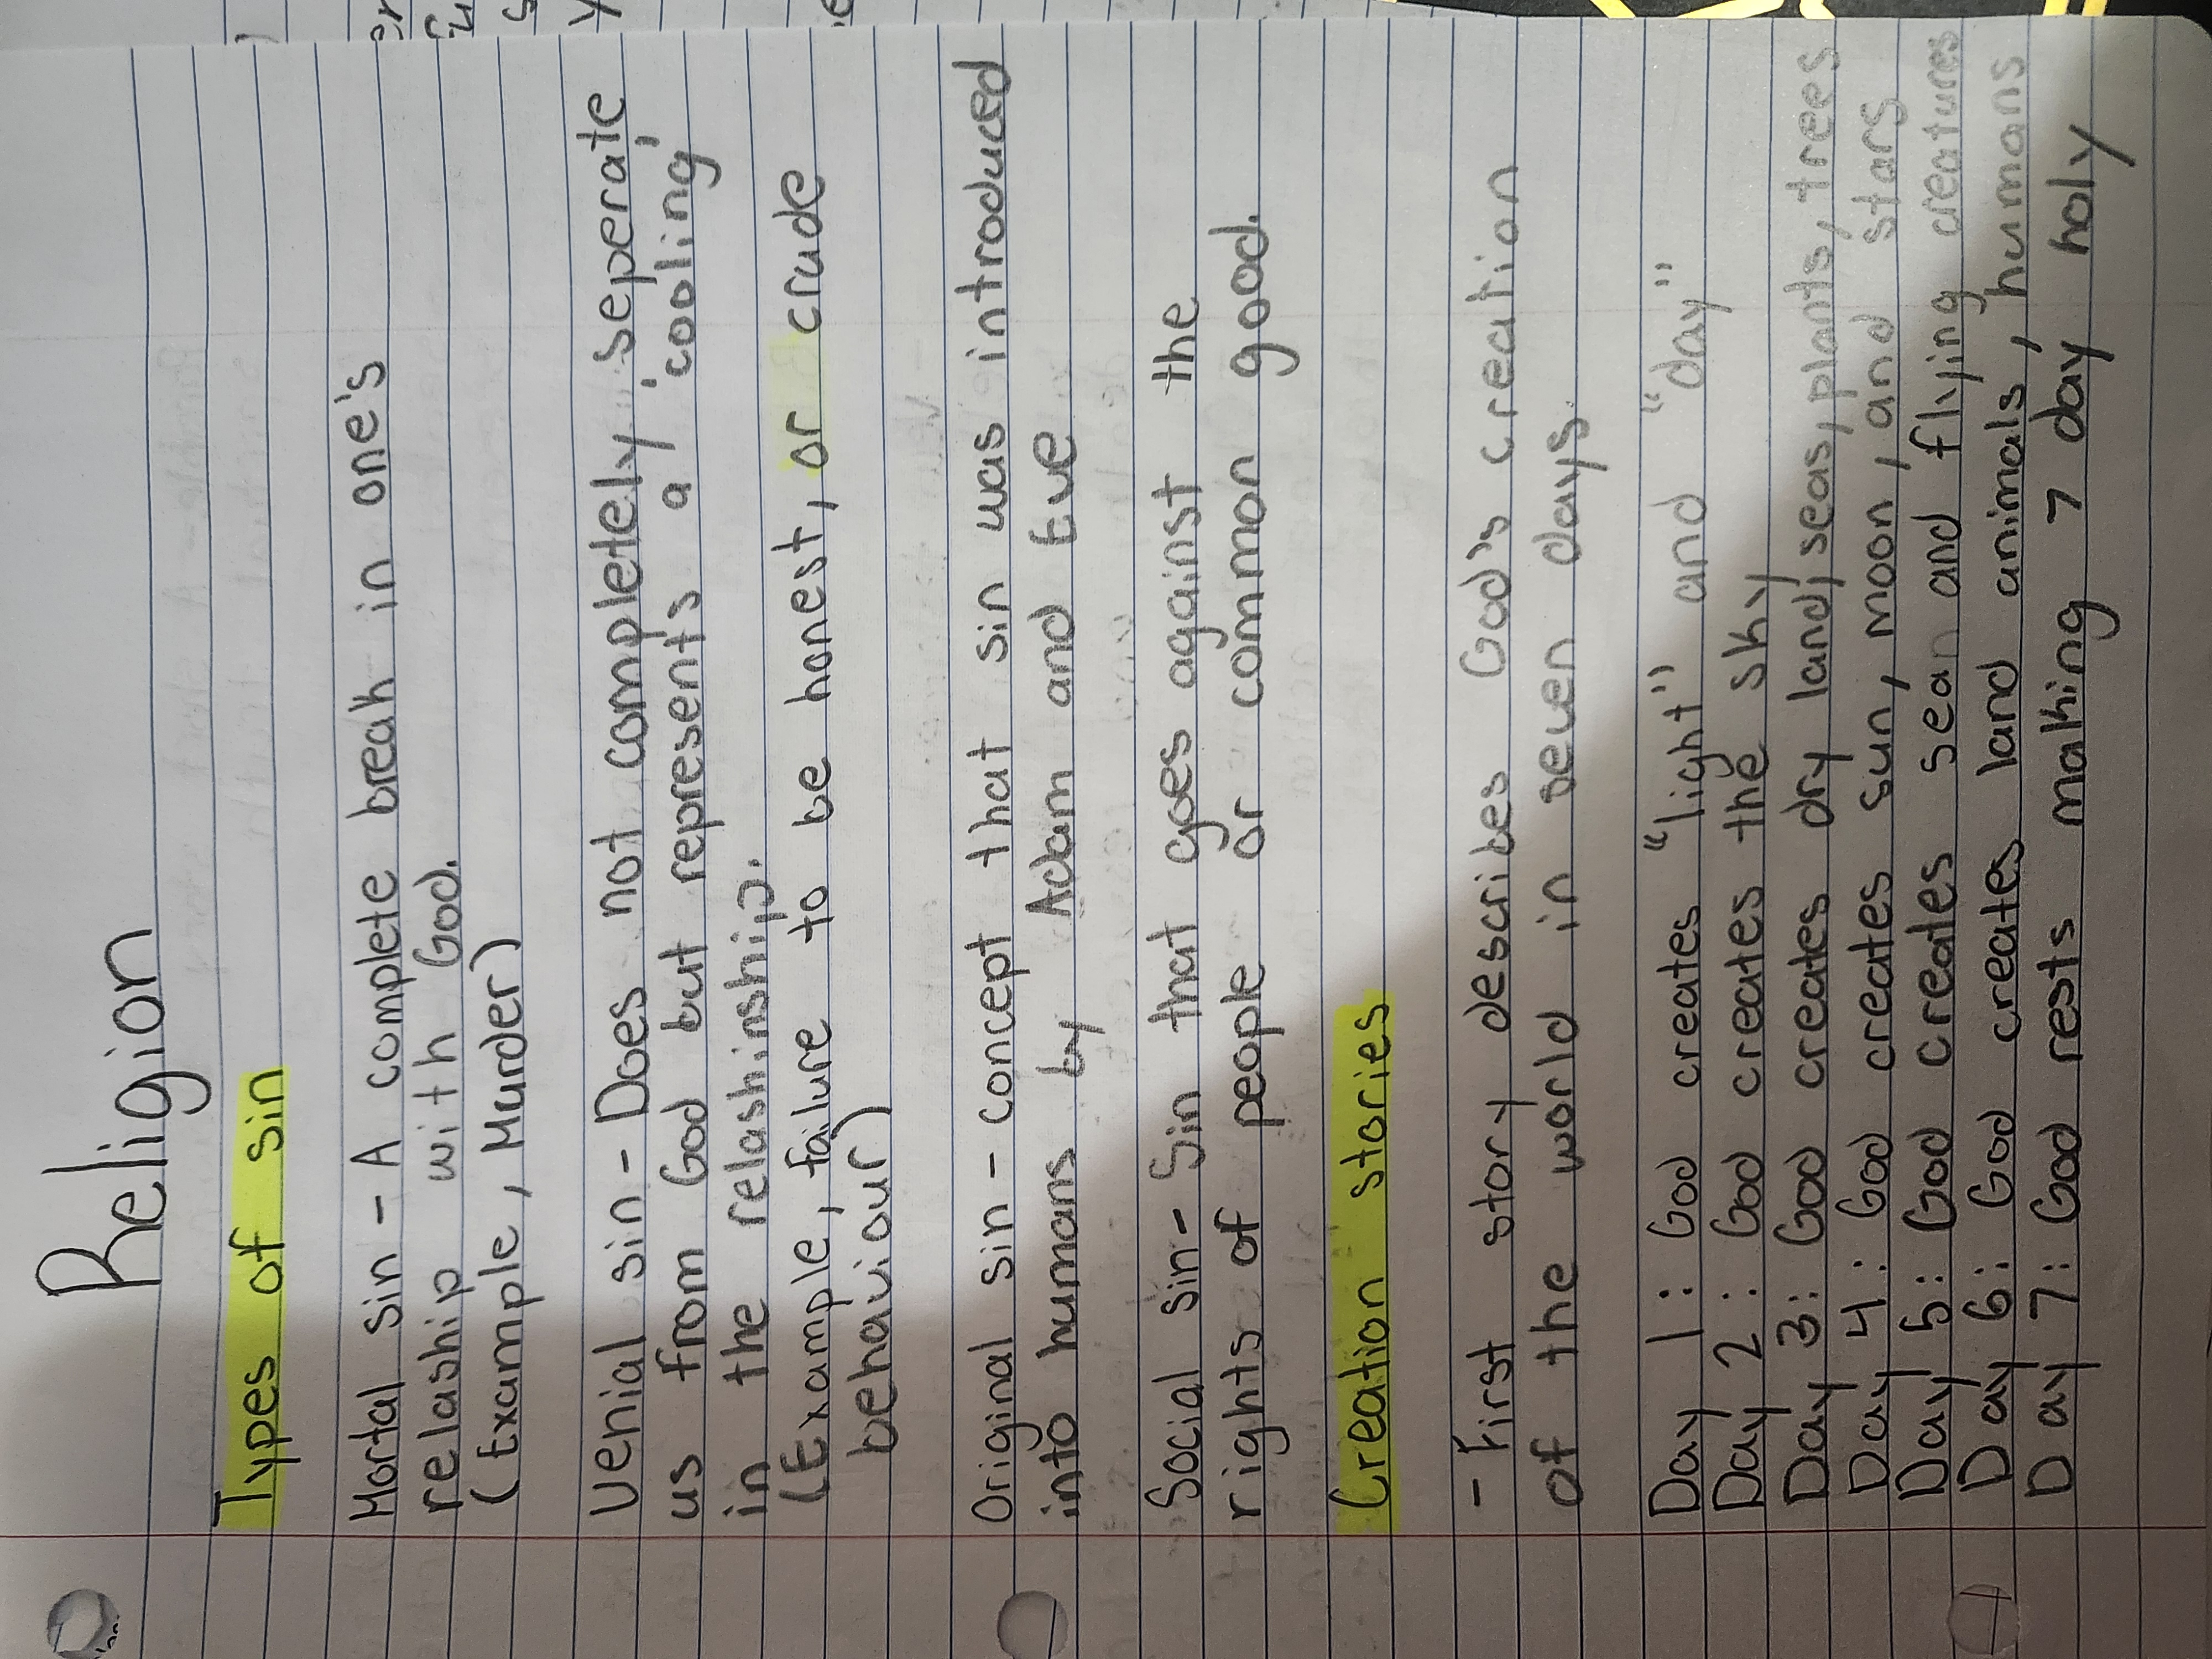 Religion
Types of sin
Mortal sin - A complete break in one's
relaship with God.
(Example, Murder)
Venial sin - Does not completely seperate
us from God but represents a 'cooling'
in the relashinship.
(Example, failure to be honest, or crude
behaviour)
Original sin - concept that sin was introduced
into humans by Adam and Eve
Social sin - Sin that goes against the
rights of people or common good.
Creation stories
- First story describes God's creation
of the world in seven days.
Day 1: God creates "light" and "day"
Day 2: God creates the sky
Day 3: God creates dry land, seas, plants, trees
Day 4: God creates sun, moon, and stars
Day 5: God creates sean and flying creatures
Day 6: God creates land animals, humans
Day 7: God rests making 7 day holy